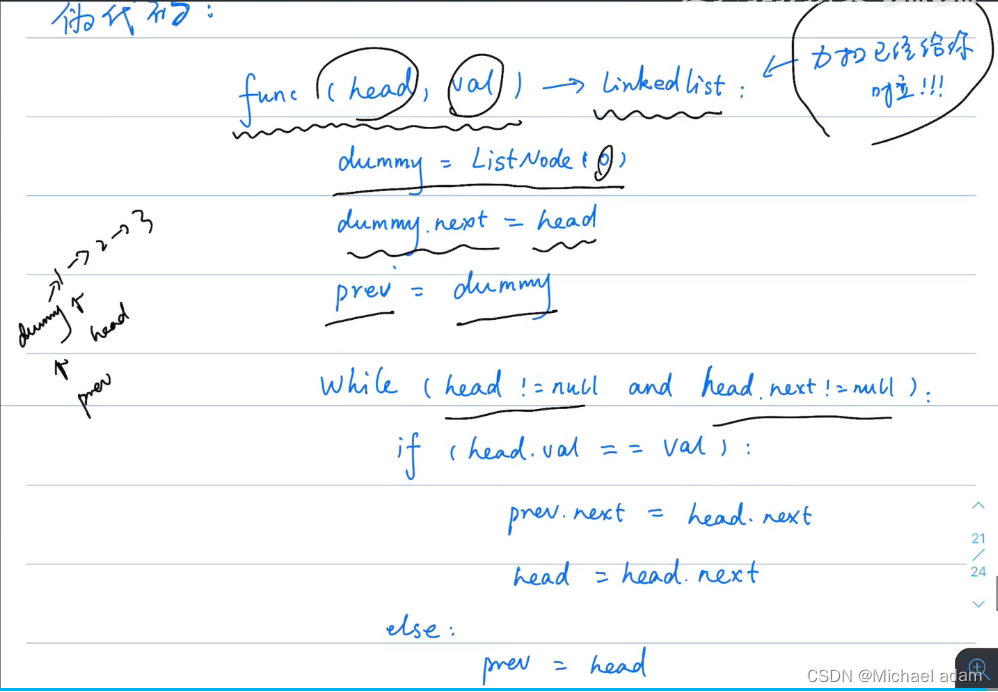 伪代码:
func (head, val) → Linkedlist:
← 力扣已经给你
啦!!!
dummy = ListNode(0)
dummy.next = head
prev = dummy
dummy → 1 → 2 → 3
head
prev
While (head != null and head.next != null):
if (head.val == val):
prev.next = head.next
head = head.next
else:
prev = head
21
/
24
CSDN @Michael adam